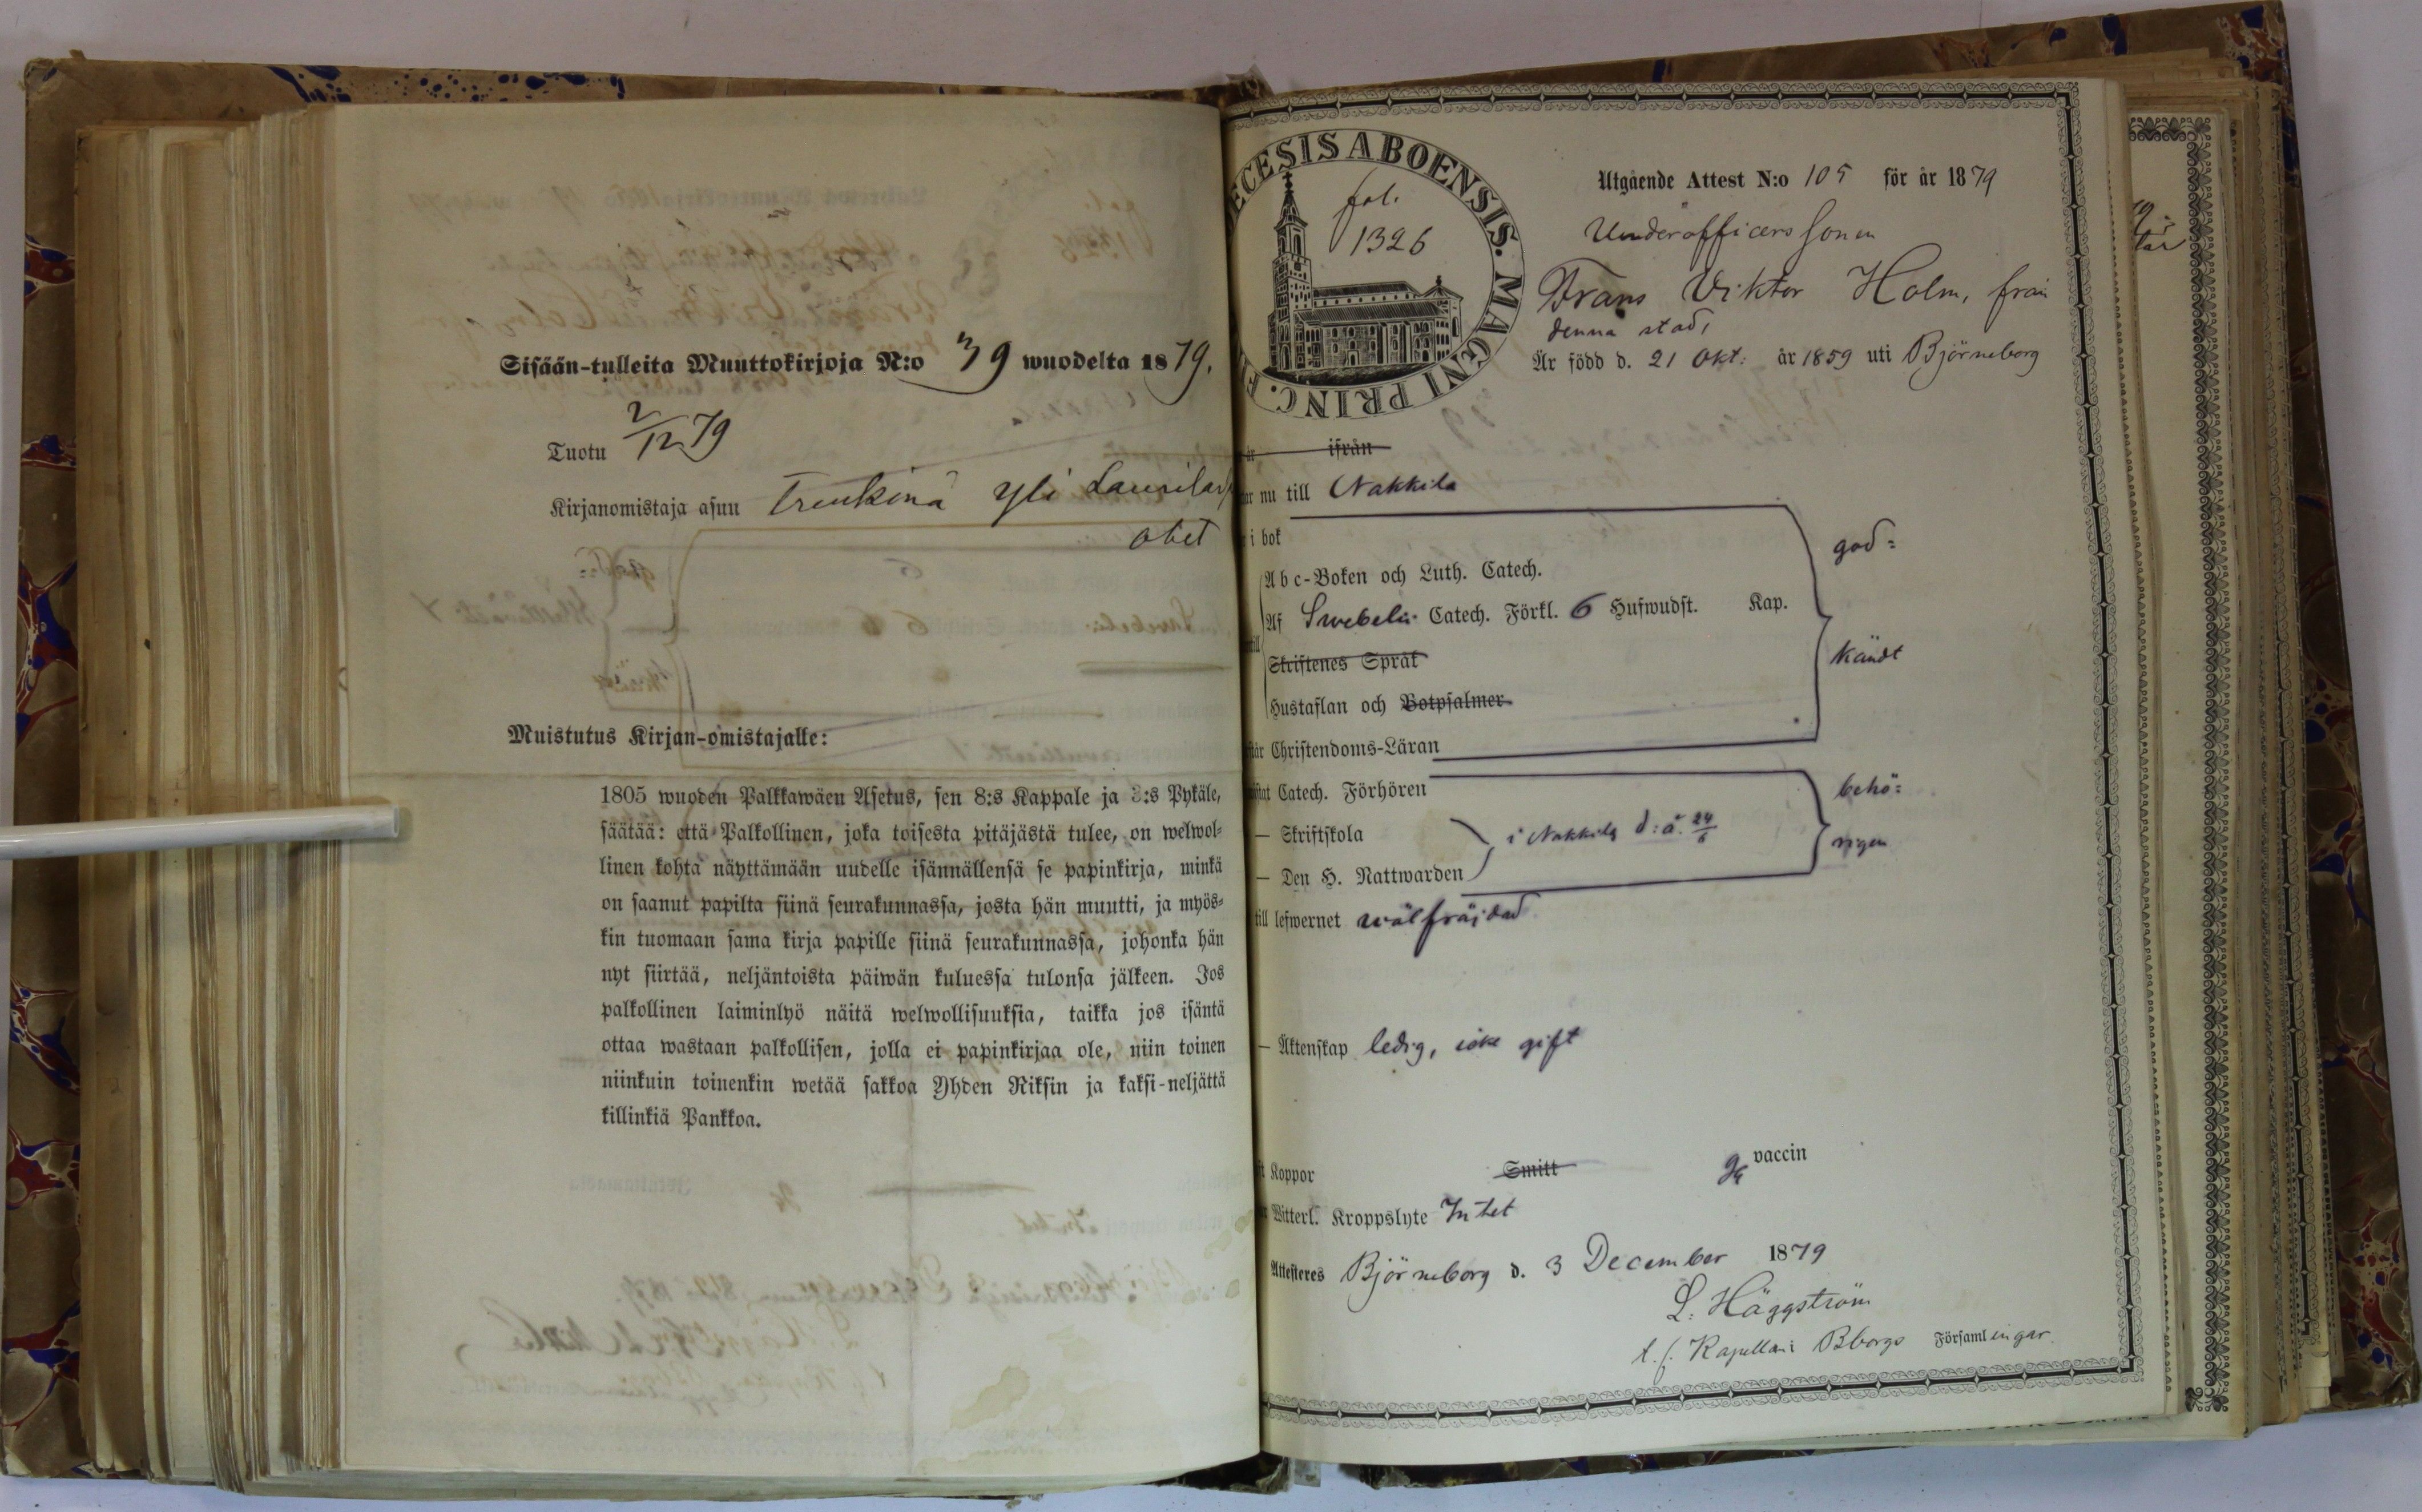 Sisään-tulleita Muuttokirjoja N:o 39 wuodelta 1879.
Tuotu 2/12 79
Kirjanomistaja asuu Yli
Muistutus Kirjan-omistajalle:
1805 wuoden Palkkawäen Asetus, sen 8:s Kappale ja 3:s Pykäle,
säätää: että Palkollinen, joka toisesta pitäjästä tulee, on welwol-
linen kohta näyttämään uudelle isännällensä se papinkirja, minkä
on saanut papilta siinä seurakunnassa, josta hän muutti, ja myös-
kin tuomaan sama kirja papille siinä seurakunnassa, johonka hän
nyt siirtää, neljäntoista päiwän kuluessa tulonsa jälkeen. Jos
palkollinen laiminlyö näitä welwollisuuksia, taikka jos isäntä
ottaa wastaan palkollisen, jolla ei papinkirjaa ole, niin toinen
niinkuin toinenkin wetää sakkoa Yhden Riksin ja kaksi-neljättä
killinkiä Pankkoa.
ECESIS ABOENSIS. MAGNI PRINC. F
fol.
1326
Utgående Attest N:o 105 för år 1879
Underofficers sonen
Frans Viktor Holm, från
denna stad,
Är född d. 21 Okt: år 1859 uti Björneborg
ifrån
nu till Nakkila
i bok
Abc-Boken och Luth. Catech.
Af Swebelii Catech. Förkl. 6 Hufwudst. Kap.
Skriftenes Språk
Hustaflan och Botpsalmer
god=
kändt
Christendoms-Läran
Catech. Förhören
— Skriftskola
i Nakkila d: å. 24/6
— Den H. Nattwarden
behö=
rigen
till lefwernet wälfräjdad
— Äktenskap ledig, icke gift
Koppor Smitt ja vaccin
Witterl. Kroppslyte Intet
Attesteres Björneborg d. 3 December 1879
L. Häggström
t. f. Kapellan i Bborgs Församlingar.